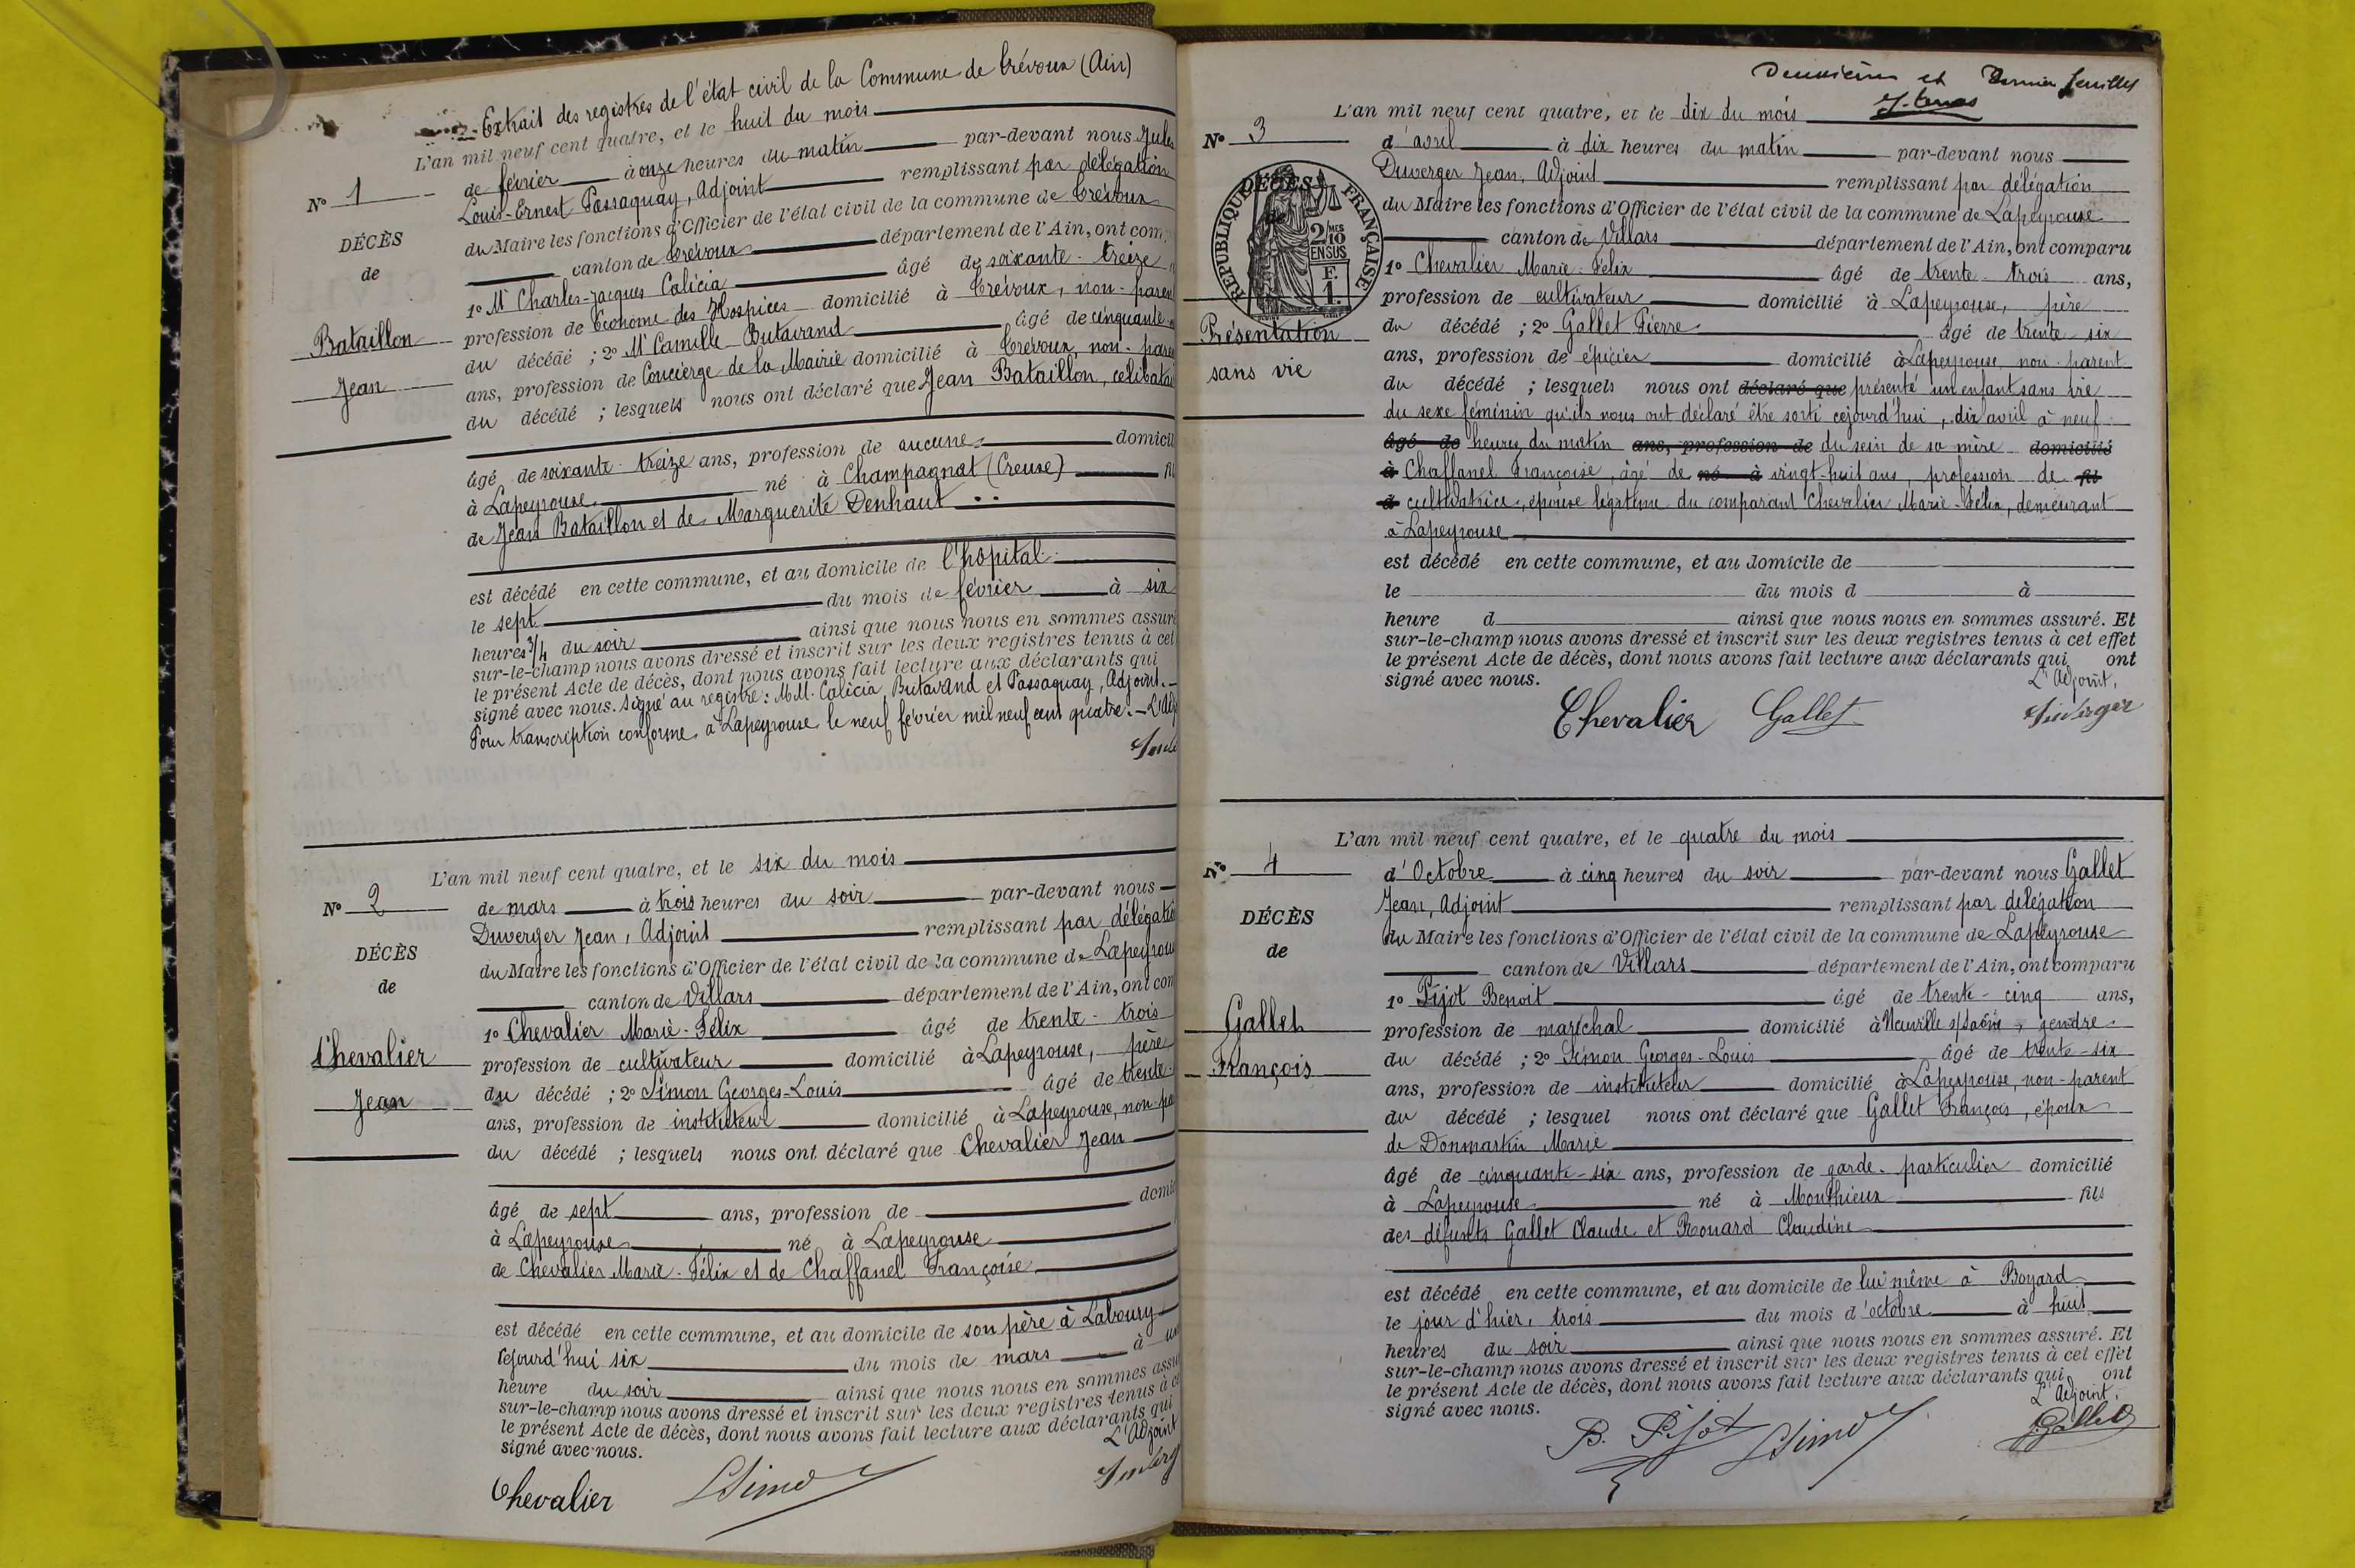 Extrait des registres de l'état civil de la Commune de Trévoux (Ain)
L'an mil neuf cent quatre, et le huit du mois
N° 1
de février à onze heures du matin par-devant nous Jules
Louis-Ernest Passaquay, Adjoint remplissant par délégation
du Maire les fonctions d'Officier de l'état civil de la commune de Trévoux
DÉCÈS
de
Bataillon
Jean
canton de Trévoux département de l'Ain, ont com
1° Mr Charles-Jacques Calicia âgé de soixante-treize
profession de Econome des Hospices domicilié à Trévoux, non-paren
du décédé ; 2° Mr Camille Butavand âgé de cinquante
ans, profession de Concierge de la Mairie domicilié à Trévoux, non-paren
du décédé ; lesquels nous ont déclaré que Jean Bataillon, célibatai
âgé de soixante-treize ans, profession de aucune domicil
à Lapeyrouse né à Champagnat (Creuse) fil
de Jean Bataillon et de Marguerite Denhaut
est décédé en cette commune, et au domicile de l'hôpital
le sept du mois de février à six
heures 3/4 du soir ainsi que nous nous en sommes assuré
sur-le-champ nous avons dressé et inscrit sur les deux registres tenus à cet
le présent Acte de décès, dont nous avons fait lecture aux déclarants qui
signé avec nous. Signé au registre : MM. Calicia, Butavand et Passaquay, Adjoint.
Pour transcription conforme, à Lapeyrouse le neuf février mil neuf cent quatre. - L'Adj
L'an mil neuf cent quatre, et le six du mois
N° 2
de mars à trois heures du soir par-devant nous
Duverger Jean, Adjoint remplissant par délégatio
du Maire les fonctions d'Officier de l'état civil de la commune de Lapeyrou
DÉCÈS
de
Chevalier
Jean
canton de Villars département de l'Ain, ont com
1° Chevalier Marie-Félix âgé de trente-trois
profession de cultivateur domicilié à Lapeyrouse, père
du décédé ; 2° Simon Georges-Louis âgé de trente
ans, profession de instituteur domicilié à Lapeyrouse, non-pa
du décédé ; lesquels nous ont déclaré que Chevalier Jean
âgé de sept ans, profession de domic
à Lapeyrouse né à Lapeyrouse
de Chevalier Marie-Félix et de Chaffanel Françoise
est décédé en cette commune, et au domicile de son père à Laboury
cejourd'hui six du mois de mars à une
heure du soir ainsi que nous nous en sommes assu
sur-le-champ nous avons dressé et inscrit sur les deux registres tenus à ce
le présent Acte de décès, dont nous avons fait lecture aux déclarants qui
signé avec nous. L'Adjoint
Chevalier LSimon
Deuxième et Dernier feuillet
L'an mil neuf cent quatre, et le dix du mois
N° 3
d'avril à dix heures du matin par-devant nous
Duverger Jean, Adjoint remplissant par délégation
du Maire les fonctions d'Officier de l'état civil de la commune de Lapeyrouse
DÉCÈS
de
REPUBLIQUE FRANÇAISE
2/10 MES
EN SUS
F.
1.
Présentation
sans vie
canton de Villars département de l'Ain, ont comparu
1° Chevalier Marie-Félix âgé de trente-trois ans,
profession de cultivateur domicilié à Lapeyrouse, père
du décédé ; 2° Gallet Pierre âgé de trente-six
ans, profession de épicier domicilié à Lapeyrouse, non-parent
du décédé ; lesquels nous ont déclaré que présenté un enfant sans vie
du sexe féminin qu'ils nous ont déclaré être sorti cejourd'hui, dix avril à neuf
âgé de heures du matin ans, profession de du sein de sa mère domicilié
à Chaffanel Françoise, âgé de né à vingt-huit ans, profession de fil
d cultivatrice, épouse légitime du comparant Chevalier Marie-Félix, demeurant
à Lapeyrouse
est décédé en cette commune, et au domicile de
le du mois d à
heure d ainsi que nous nous en sommes assuré. Et
sur-le-champ nous avons dressé et inscrit sur les deux registres tenus à cet effet
le présent Acte de décès, dont nous avons fait lecture aux déclarants qui ont
signé avec nous. L'Adjoint,
Chevalier Gallet Duverger
L'an mil neuf cent quatre, et le quatre du mois
N° 4
d'Octobre à cinq heures du soir par-devant nous Gallet
Jean, Adjoint remplissant par délégation
du Maire les fonctions d'Officier de l'état civil de la commune de Lapeyrouse
DÉCÈS
de
Gallet
François
canton de Villars département de l'Ain, ont comparu
1° Pijot Benoit âgé de trente-cinq ans,
profession de maréchal domicilié à Neuville s/Saône, gendre
du décédé ; 2° Simon Georges-Louis âgé de trente-six
ans, profession de instituteur domicilié à Lapeyrouse, non-parent
du décédé ; lesquel nous ont déclaré que Gallet François, époux
de Donmartin Marie
âgé de cinquante-six ans, profession de garde-particulier domicilié
à Lapeyrouse né à Monthieux fils
des défunts Gallet Claude et Rouard Claudine
est décédé en cette commune, et au domicile de lui même à Boyard
le jour d'hier, trois du mois d'octobre à huit
heures du soir ainsi que nous nous en sommes assuré. Et
sur-le-champ nous avons dressé et inscrit sur les deux registres tenus à cet effet
le présent Acte de décès, dont nous avons fait lecture aux déclarants qui ont
signé avec nous. L'Adjoint,
B. Pijot LSimon JGallet